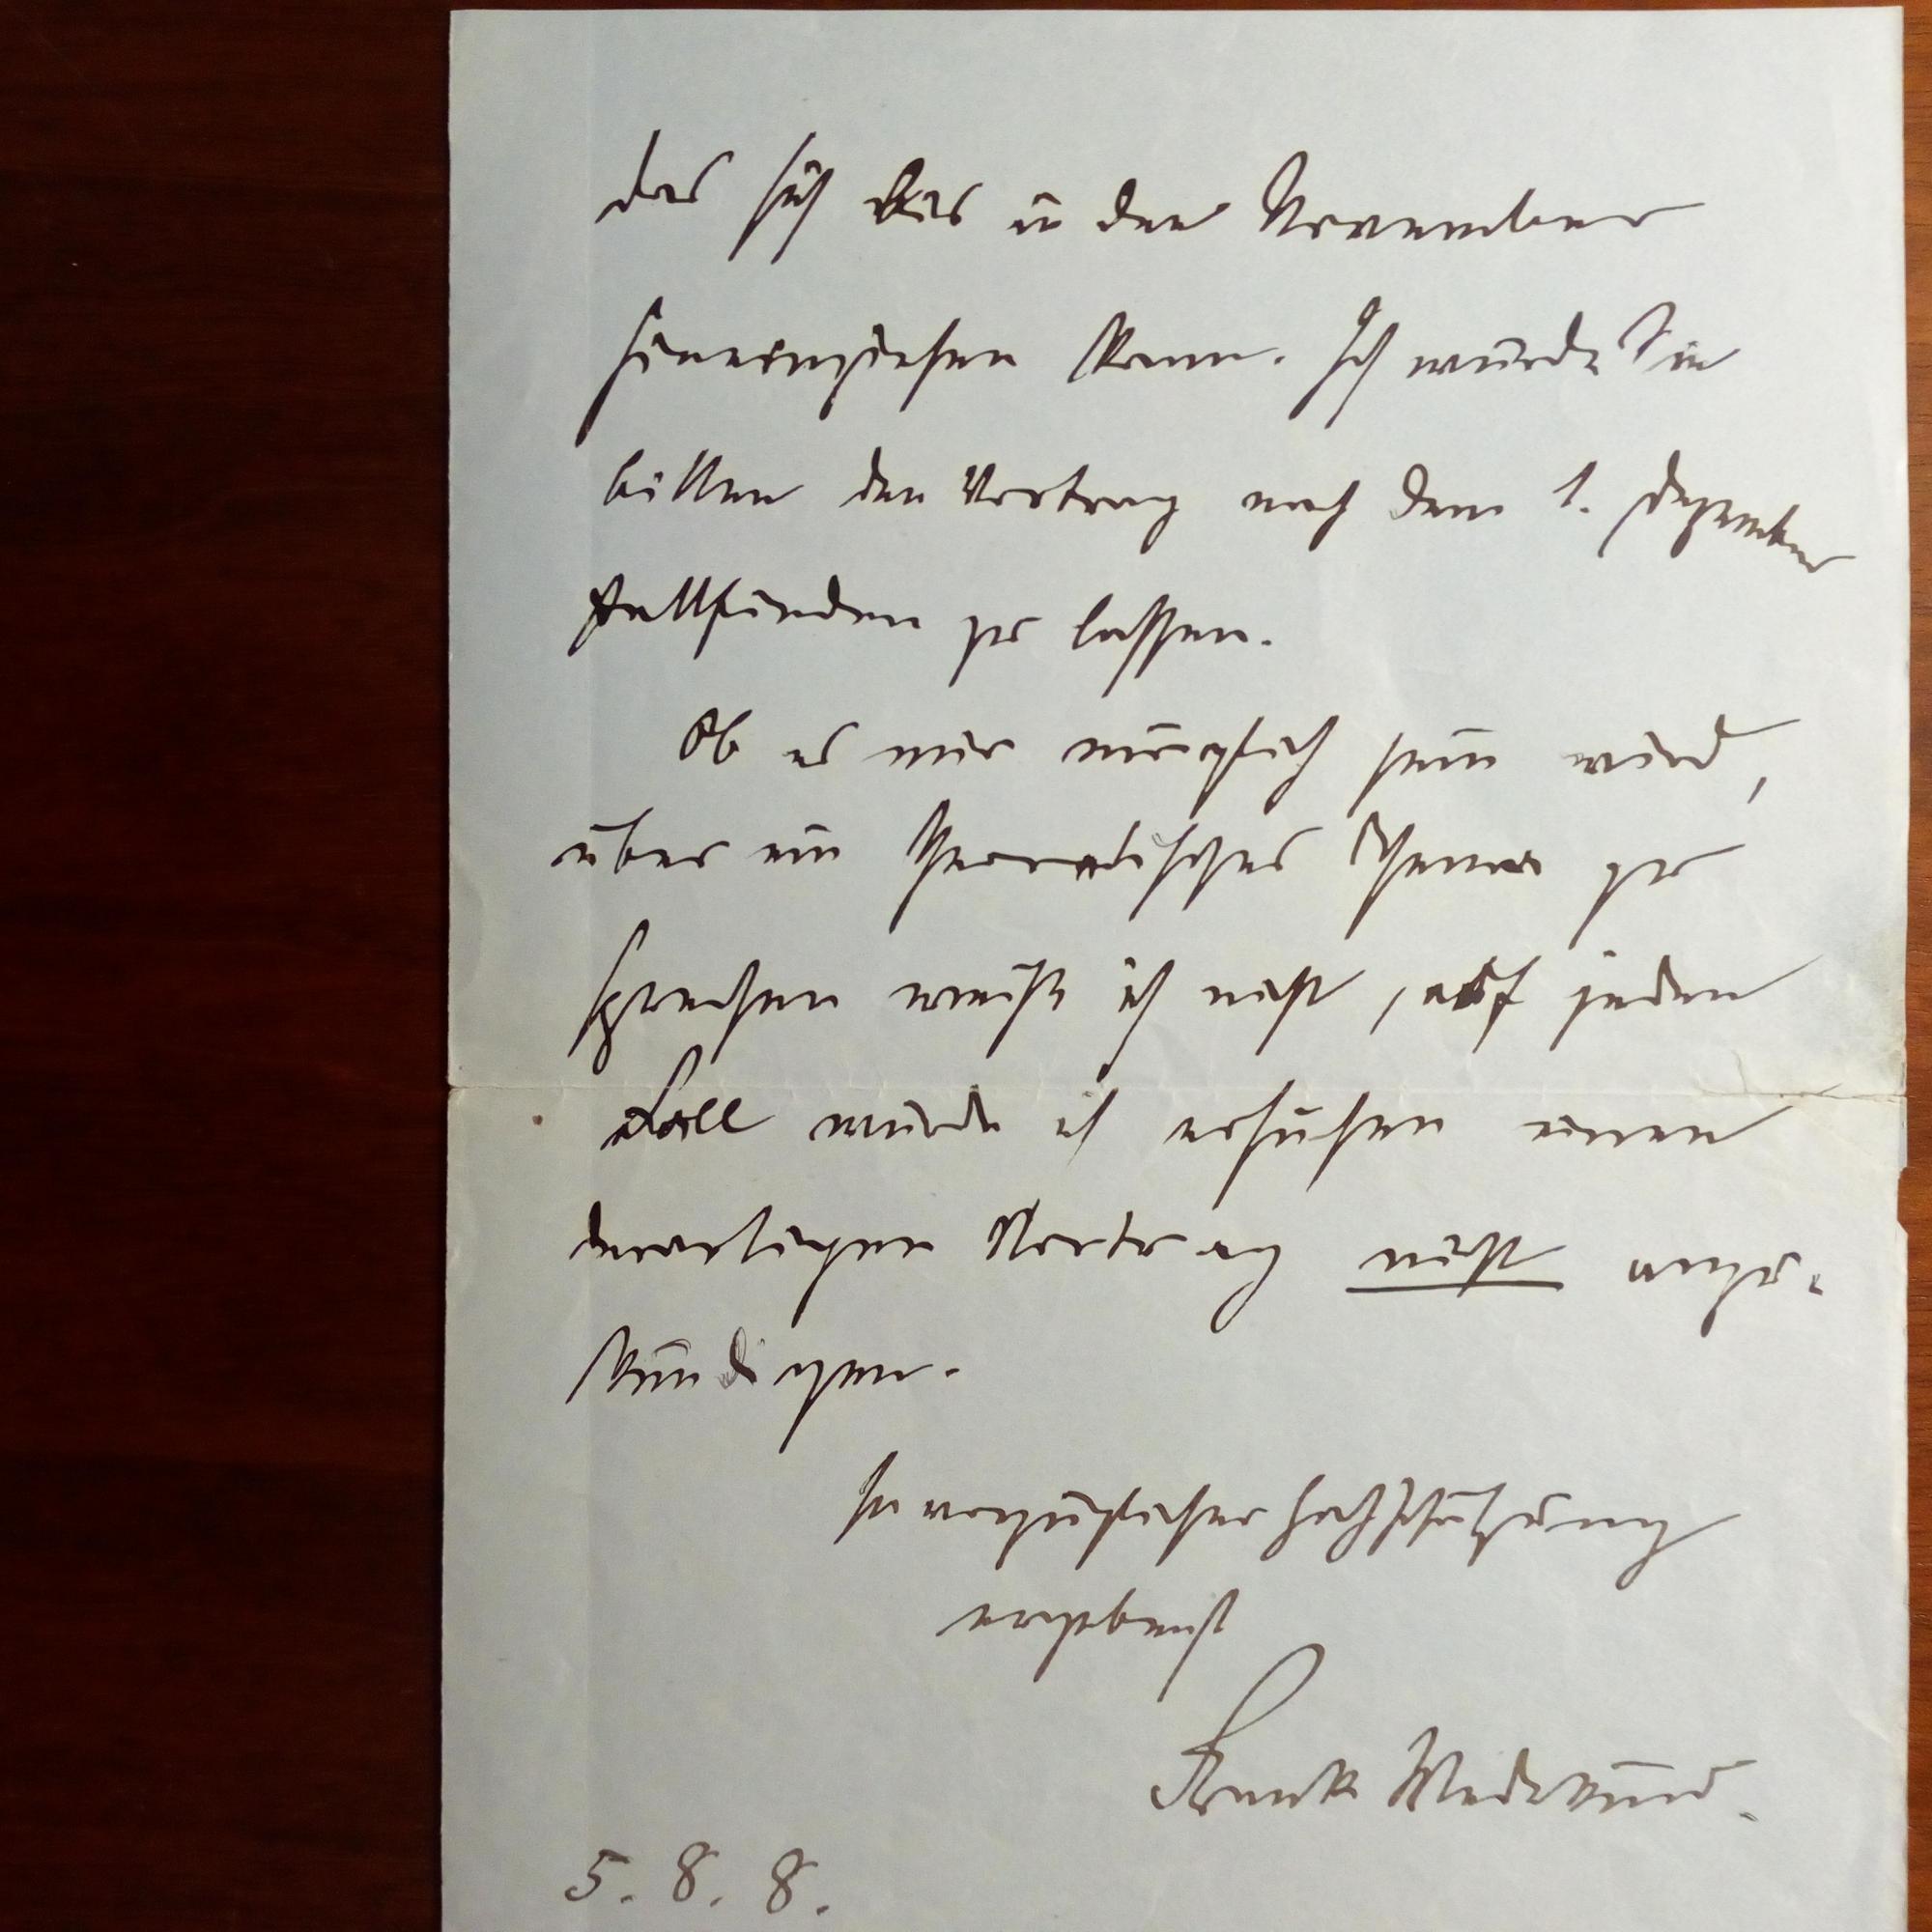 das sich bis in den November
hineinziehen kann. Ich würde Sie
bitten den Vortrag nach dem 1. Dezember
stattfinden zu lassen.
Ob es mir möglich sein wird,
über ein theoretisches Thema zu
sprechen weiß ich nicht, auf jeden
Fall würde ich ersuchen einen
derartigen Vortrag nicht anzu-
kündigen.
In vorzüglicher Hochschätzung
ergebenst
Frank Wedekind.
5. 8. 8.